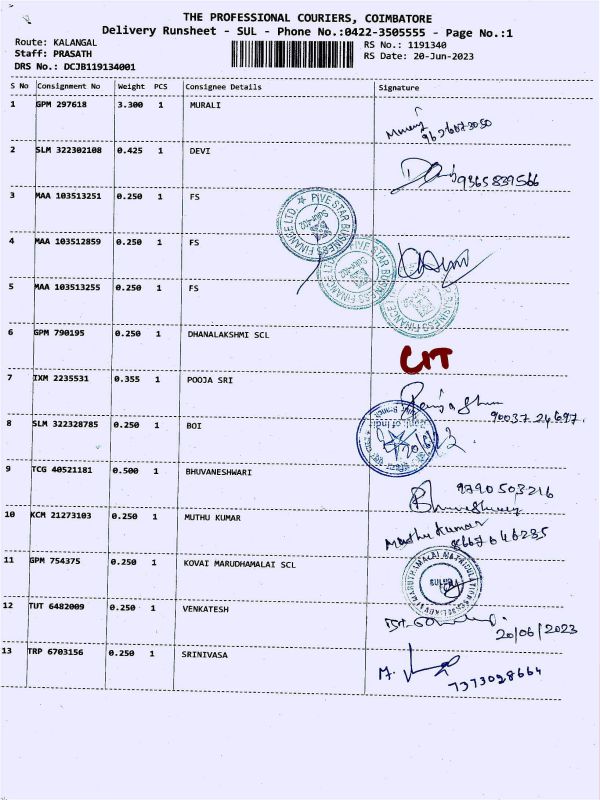 THE PROFESSIONAL COURIERS, COIMBATORE
Delivery Runsheet - SUL - Phone No.:0422-3505555 - Page No.:1
Route: KALANGAL RS No.: 1191340
Staff: PRASATH RS Date: 20-Jun-2023
DRS No.: DCJB119134001
S No Consignment No Weight PCS Consignee Details Signature
1 GPM 297618 3.300 1 MURALI
2 SLM 322302108 0.425 1 DEVI
9365839566
3 MAA 103513251 0.250 1 FS
FIVE STAR BUSINESS FINANCE LTD
4 MAA 103512859 0.250 1 FS
5 MAA 103513255 0.250 1 FS
6 GPM 790195 0.250 1 DHANALAKSHMI SCL
CIT
7 IXM 2235531 0.355 1 POOJA SRI
90037 24697.
8 SLM 322328785 0.250 1 BOI
Bank of India
9 TCG 40521181 0.500 1 BHUVANESHWARI
9790503216
10 KCM 21273103 0.250 1 MUTHU KUMAR
Muthu Kumar
8667646235
11 GPM 754375 0.250 1 KOVAI MARUDHAMALAI SCL
12 TUT 6482009 0.250 1 VENKATESH
20/06/2023
13 TRP 6703156 0.250 1 SRINIVASA
7373028664